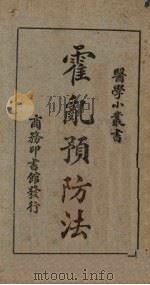 醫學小叢書
霍亂預防法
商務印書館發行
www.ipubook.com